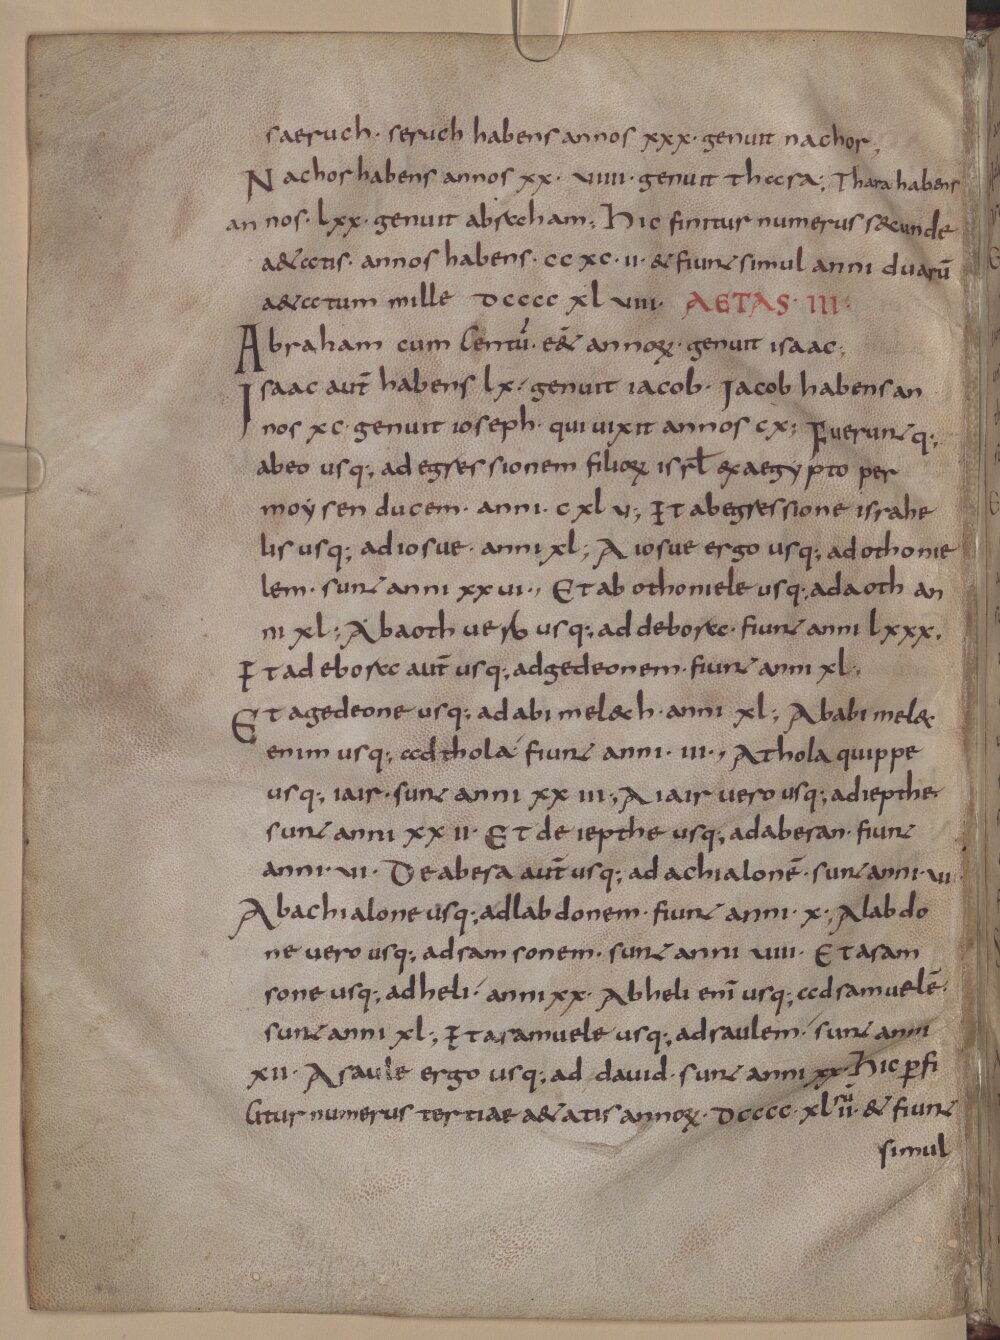 saeruch · seruch habens annos xxx · genuit nachor;
Nachor habens annos xx · viiii · genuit thara; Thara habens
annos · lxx · genuit abraham; Hic finitur numerus secunde
aetatis · annos habens · cc xc · ii · & fiunt simul anni duarū
aetatum mille dcccc xl viii · AETAS · III ·
Abraham cum centū · e&̄ annorꝝ · genuit isaac;
Isaac aut̄ habens lx · genuit iacob · Jacob habens an
nos xc · genuit ioseph · qui uixit annos cx; Fuerunt q·;
abeo usq·; ad egressionem filiorꝝ isrł ex aegypto per
moẏsen ducem · anni · cxl v·; Et ab egressione israhe
lis usq·; ad iosue · anni xl; A iosue ergo usq·; ad othonie
lem · sunt anni xxvi·, Et ab othoniele usq·; ad aoth an
ni xl·; Ab aoth uero usq·; ad deborac · fiunt anni lxxx,
Et a deborac aut̄ usq·; ad gedeonem · fiunt anni xl·,
Et a gedeone usq·; ad abimelech · anni xl·; Ab abimelec
enim usq·; ad thola · fiunt anni · iii·, A thola quippe
usq·; iair · sunt anni xx iii·; A iair uero usq·; ad iepthe ·
sunt anni xx ii · Et de iepthe usq·; ad abesan · fiunt
anni · vi · De abesa aut̄ usq·; ad achialonē · sunt anni · vii
Ab achialone usq·; ad labdonem · fiunt anni · x·; A labdo
ne uero usq·; ad samsonem · sunt anni viiii · Et a sam
sone usq·; ad heli · anni xx · Ab heli enī usq·; ad samuelē ·
sunt anni xl·; Et a samuele usq·; ad saulem · sunt anni
xii · A saule ergo usq·; ad dauid · sunt anni xx · Hic ꝑfi
citur numerus tertiae aetatis annorꝝ · dcccc · xl ii · & fiunt
simul